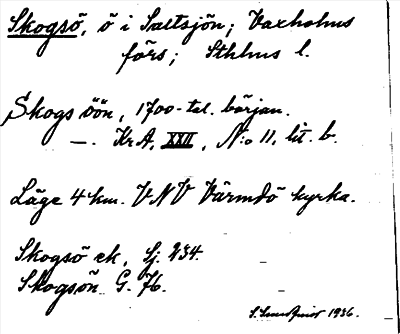 Skogsö, ö i Saltsjön; Vaxholms
förs; Sthlms l.
Skogs öön, 1700-tal. början.
—. KrA, XXII, N:o 11, lit. b.
Läge 4 km. VNV Värmdö kyrka.
Skogsö ek, Sj. 234.
Skogsön G. 76.
S. 1936.